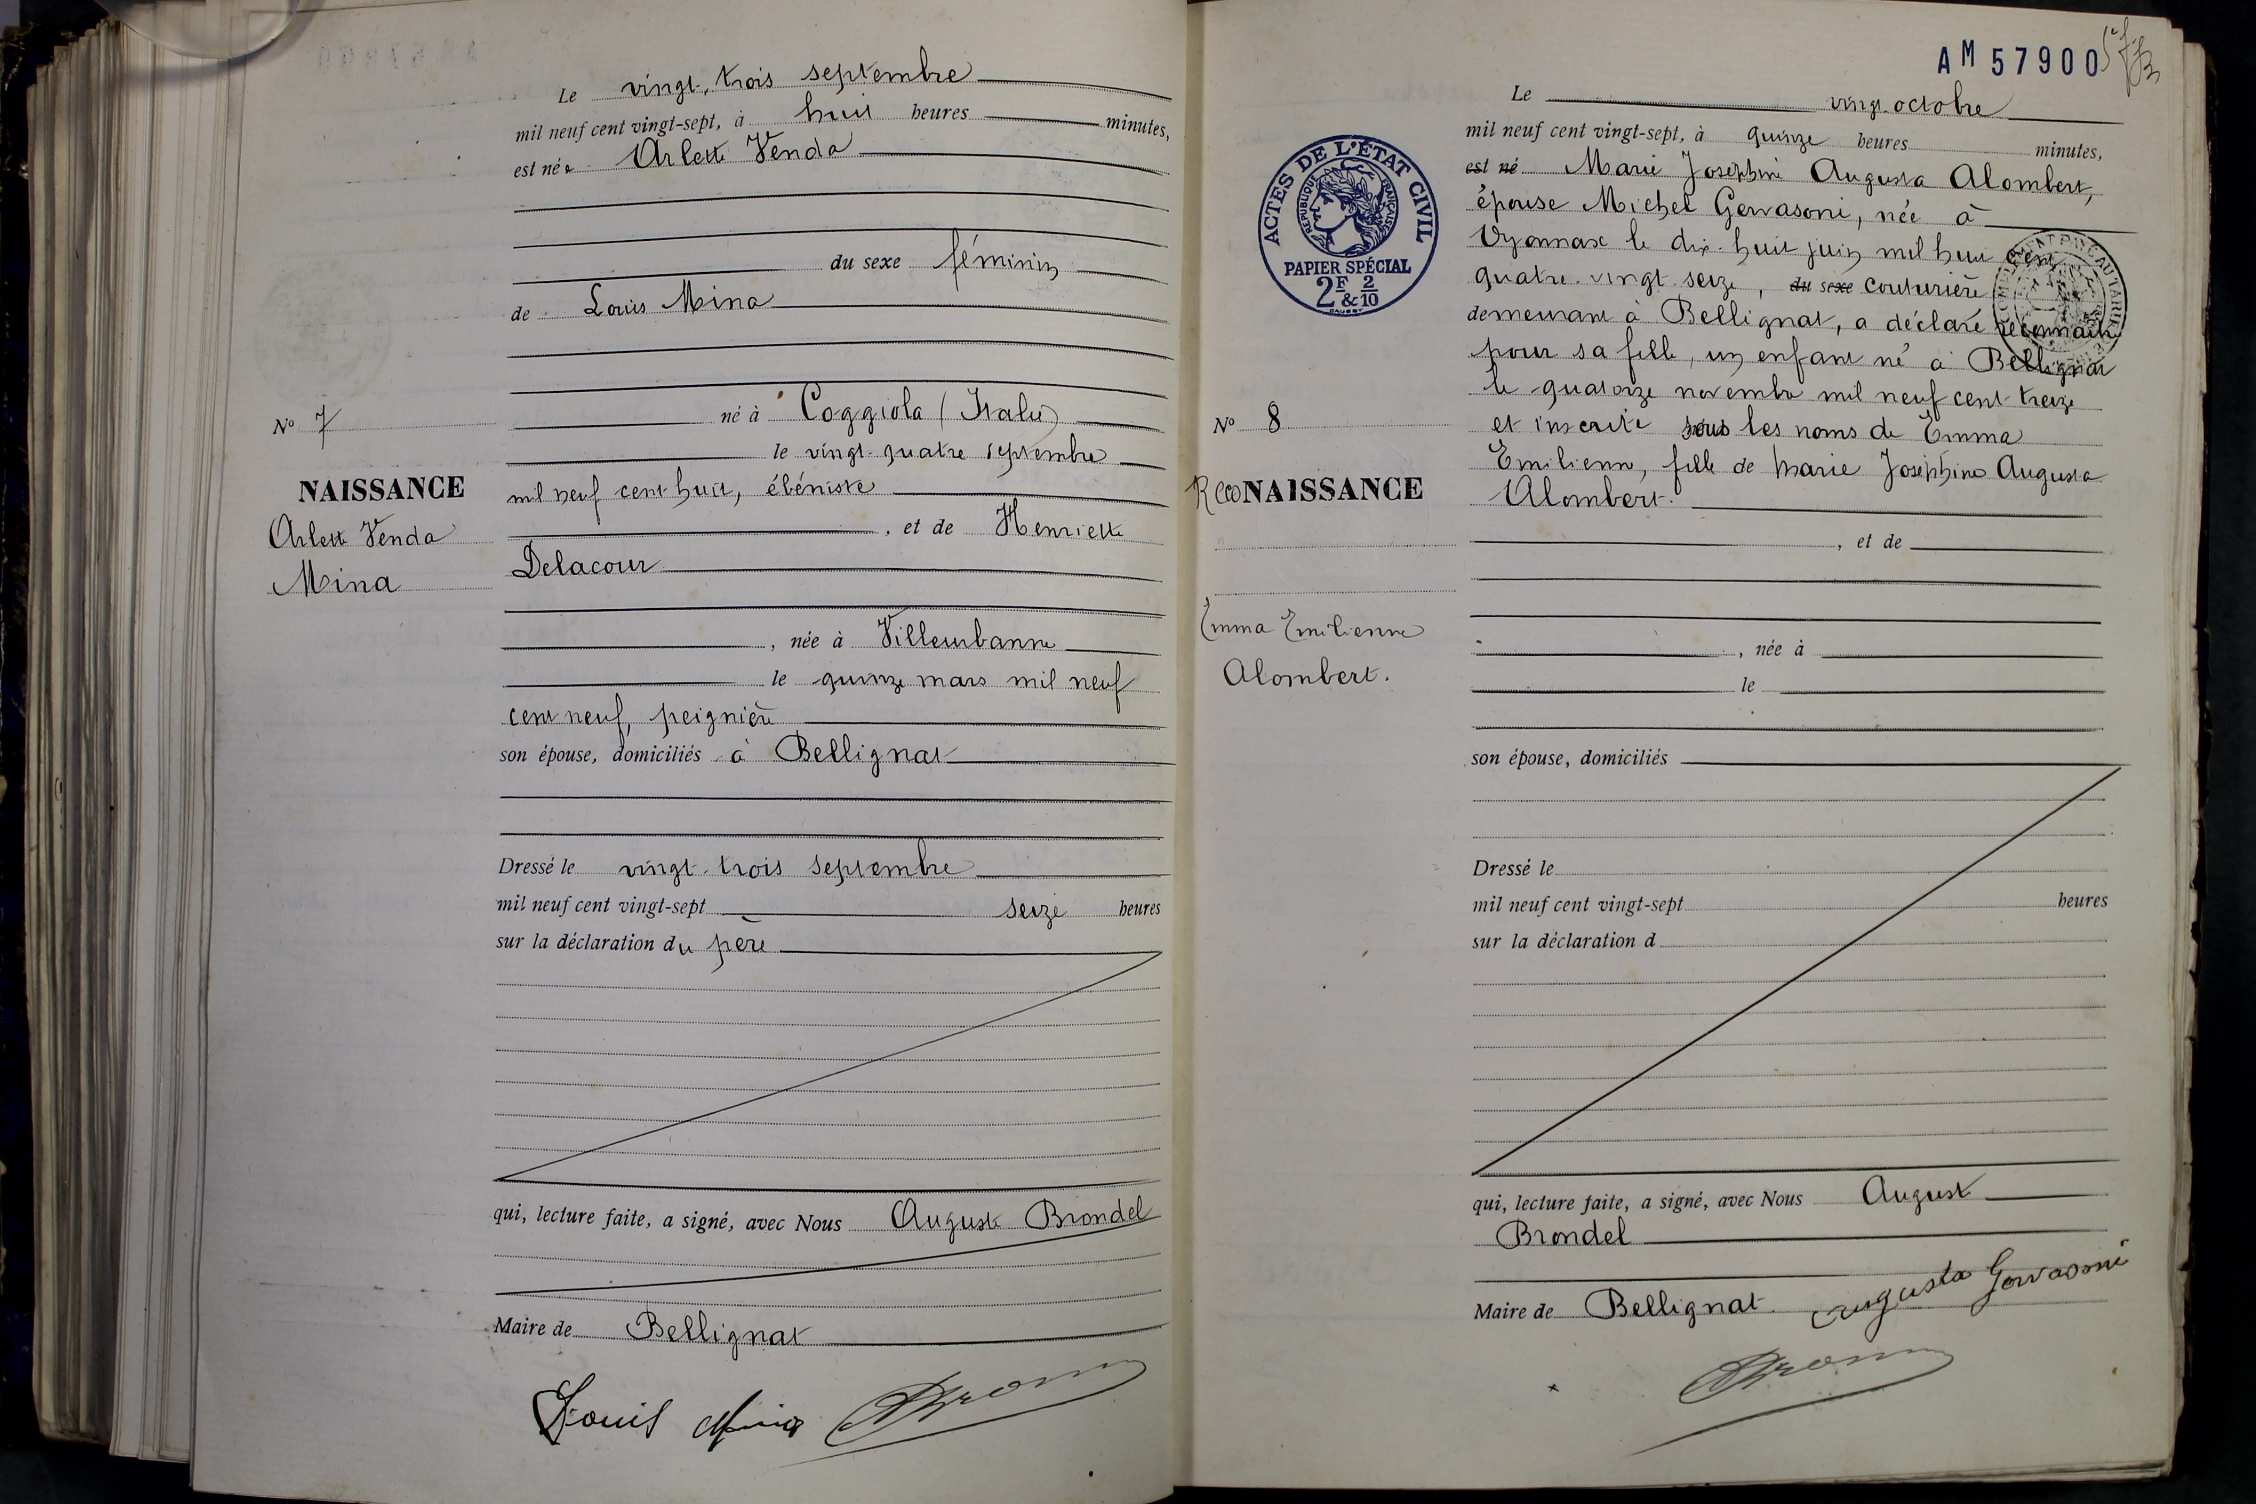 Le vingt-trois septembre
mil neuf cent vingt-sept, à huit heures minutes,
est née Arlette Venda
du sexe féminin
de Louis Mina
né à Coggiola (Italie)
le vingt-quatre septembre
mil neuf cent huit, ébéniste
, et de Henriette
Delacour
, née à Villeurbanne
le quinze mars mil neuf
cent neuf, peignière
son épouse, domiciliés à Bellignat
Dressé le vingt-trois septembre
mil neuf cent vingt-sept seize heures
sur la déclaration du père
qui, lecture faite, a signé, avec Nous Auguste Brondel
Maire de Bellignat
Louis Mina
No 7
NAISSANCE
Arlette Venda
Mina
AM 57900
Le vingt octobre
mil neuf cent vingt-sept, à quinze heures minutes,
est né Marie Joséphine Augusta Alombert,
épouse Michel Gervasoni, née à
Oyonnax le dix-huit juin mil huit cent
quatre-vingt-seize, du sexe couturière
demeurant à Bellignat, a déclaré reconnaître
pour sa fille, un enfant né à Bellignat
le quatorze novembre mil neuf cent treize
et inscrite sous les noms de Emma
Emilienne, fille de Marie Joséphine Augusta
Alombert.
, et de
, née à
le
son épouse, domiciliés
Dressé le
mil neuf cent vingt-sept heures
sur la déclaration d
qui, lecture faite, a signé, avec Nous Auguste
Brondel
Maire de Bellignat
Augusta Gervasoni
ACTES DE L'ÉTAT CIVIL
RÉPUBLIQUE FRANÇAISE
PAPIER SPÉCIAL
2F & 2/10
No 8
RecoNAISSANCE
Emma Emilienne
Alombert.